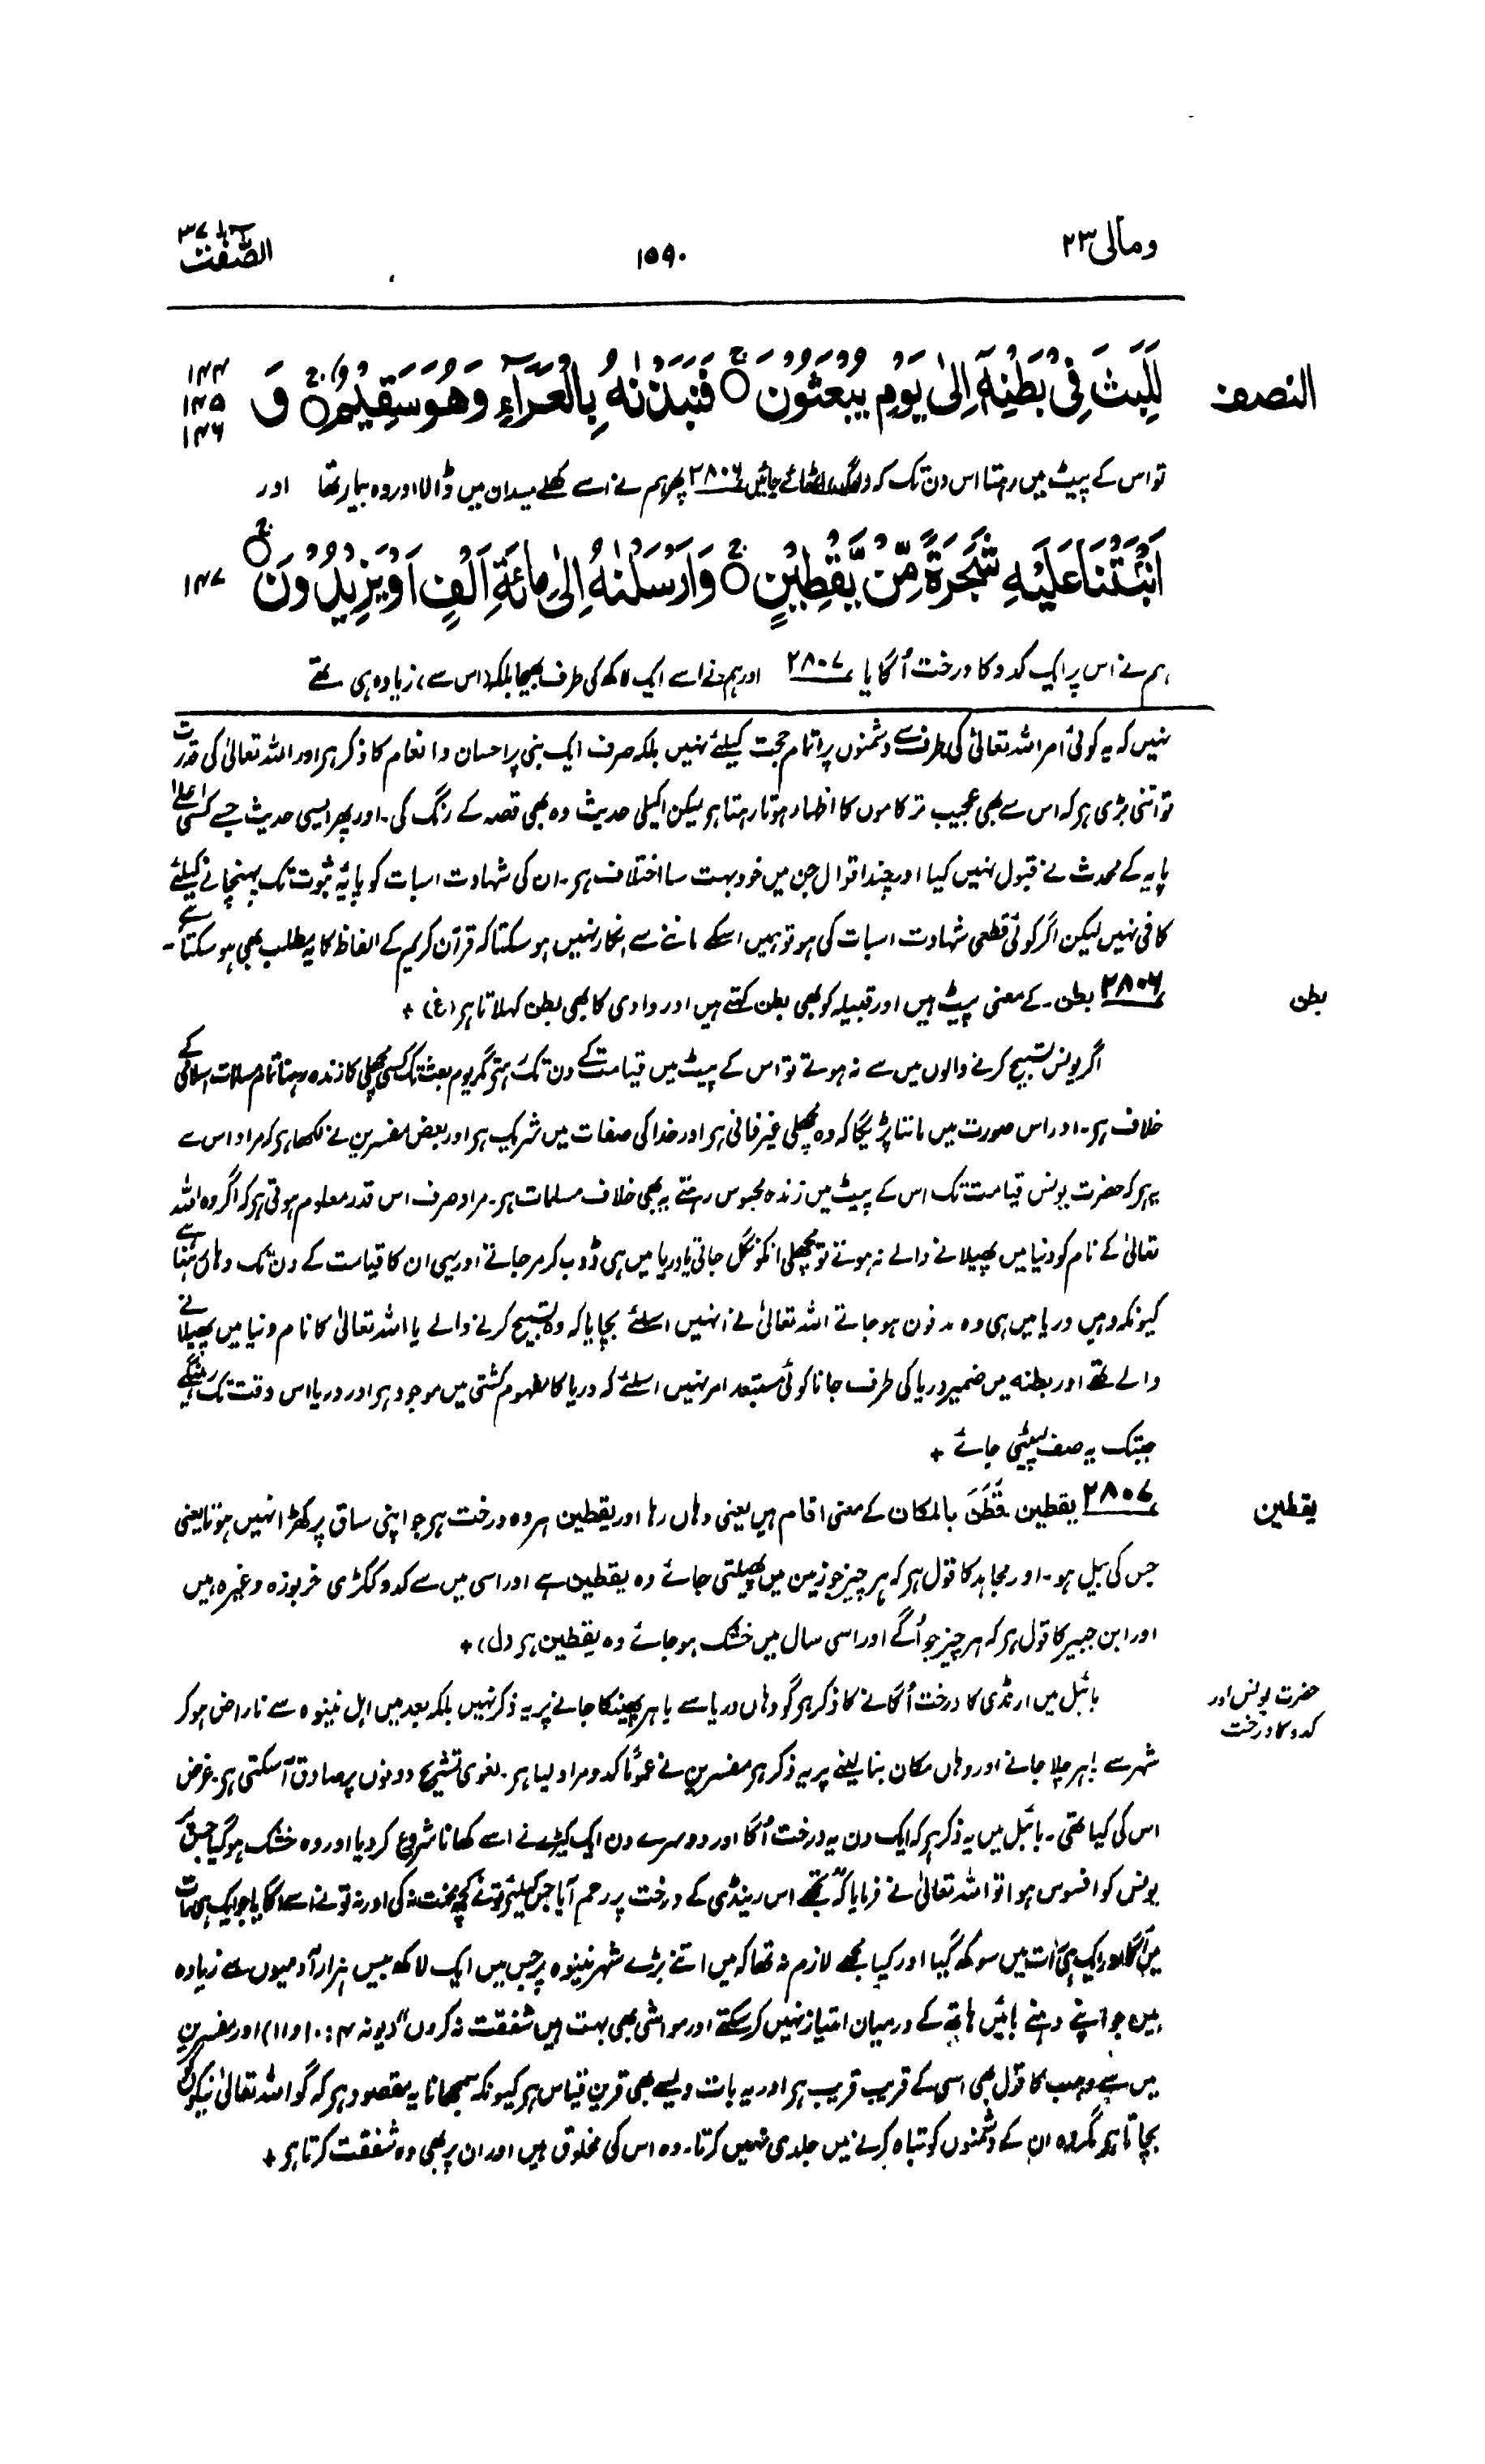 ومالی ۲۳
۱۵۹۰
الصّٰفّٰت ۳۷
النصف
لَلَبِثَ فِیْ بَطْنِهٖۤ اِلٰی یَوْمِ یُبْعَثُوْنَ ۚ فَنَبَذْنٰهُ بِالْعَرَآءِ وَهُوَ سَقِیْمٌ ۚ وَ
۱۴۴
۱۴۵
۱۴۶
تو اس کے پیٹ میں رہتا اس دن تک کہ (لوگ) اٹھائے جائیں ۲۸۰۶ پھر ہم نے اسے کھلے میدان میں ڈالا اور وہ بیمار تھا اور
اَنْۢبَتْنَا عَلَیْهِ شَجَرَةً مِّنْ یَّقْطِیْنٍ ۚ وَاَرْسَلْنٰهُ اِلٰی مِائَةِ اَلْفٍ اَوْ یَزِیْدُوْنَ ۚ
۱۴۷
ہم نے اس پر ایک کدو کا درخت اُگایا ۲۸۰۷ اور ہم نے اسے ایک لاکھ کی طرف بھیجا بلکہ (اس سے) زیادہ ہی تھے
نہیں کہ یہ کوئی امر اللہ تعالیٰ کی طرف سے دشمنوں پر اتمام حجت کیلئے نہیں بلکہ صرف ایک نبی پر احسان و انعام کا ذکر ہے اور اللہ تعالیٰ کی قدرت
تو اتنی بڑی ہے کہ اس سے بھی عجیب تر کاموں کا اظہار ہوتا رہتا ہے لیکن اکیلی حدیث وہ بھی قصہ کے رنگ کی ۔ اور پھر ایسی حدیث جسے کسی اعلےٰ
پایہ کے محدث نے قبول نہیں کیا اور چند اقوال جن میں خود بہت سا اختلاف ہے ۔ ان کی شہادت اسبات کو پایۂ ثبوت تک پہنچانے کیلئے
کافی نہیں لیکن اگر کوئی قطعی شہادت اسبات کی ہو تو ہمیں اسکے ماننے سے انکار نہیں ہو سکتا کہ قرآن کریم کے الفاظ کا یہ مطلب بھی ہو سکتا ہے ۔
بطن
۲۸۰۶ بطن ۔ کے معنی پیٹ ہیں اور قبیلہ کو بھی بطن کہتے ہیں اور وادی کا بھی بطن کہلاتا ہے (غ) +
اگر یونس تسبیح کرنے والوں میں سے نہ ہوتے تو اس کے پیٹ میں قیامت کے دن تک رہتے مگر یوم بعث تک کسی مچھلی کا زندہ رہنا تمام مسلمات اسلامی کے
خلاف ہے ۔ اور اس صورت میں ماننا پڑیگا کہ وہ مچھلی غیر فانی ہے اور خدا کی صفات میں شریک ہے اور بعض مفسرین نے لکھا ہے کہ مراد اس سے
یہ ہے کہ حضرت یونس قیامت تک اس کے پیٹ میں زندہ محبوس رہتے یہ بھی خلاف مسلمات ہے ۔ مراد صرف اس قدر معلوم ہوتی ہے کہ اگر وہ اللہ
تعالیٰ کے نام کو دنیا میں پھیلانے والے نہ ہوتے تو مچھلی انکو نگل جاتی یا دریا میں ہی ڈوب کر مر جاتے اور یہی ان کا قیامت کے دن تک وہاں رہنا ہے
کیونکہ وہیں دریا میں ہی وہ مدفون ہو جاتے اللہ تعالیٰ نے انہیں اسلئے بچایا کہ وہ تسبیح کرنے والے یا اللہ تعالیٰ کا نام دنیا میں پھیلانے
والے تھے اور بطنہ میں ضمیر دریا کی طرف جانا کوئی مستبعد امر نہیں اسلئے کہ دریا کا مفہوم کشتی میں موجود ہے اور دریا اس وقت تک رہینگے
جبتک یہ صف لپیٹی جائے +
یقطین
۲۸۰۷ یقطین قَطَنَ بالمکان کے معنی اقام ہیں یعنی وہاں رہا اور یقطین ہر وہ درخت ہے جو اپنی ساق پر کھڑا نہیں ہوتا یعنی
جس کی بیل ہو ۔ اور مجاہد کا قول ہے کہ ہر چیز جو زمین میں پھیلتی جائے وہ یقطین ہے اور اسی میں سے کدو ککڑی خربوزہ وغیرہ ہیں
اور ابن جبیر کا قول ہے کہ ہر چیز جو اُگے اور اسی سال میں خشک ہو جائے وہ یقطین ہے (ل) +
حضرت یونس اور
کدو کا درخت
بائبل میں ارنڈی کا درخت اُگانے کا ذکر ہے گو وہاں دریا سے باہر پھینکا جانے پر یہ ذکر نہیں بلکہ بعد میں اہل نینوہ سے ناراض ہو کر
شہر سے باہر چلا جانے اور وہاں مکان بنا لینے پر یہ ذکر ہے مفسرین نے عموماً کدو مراد لیا ہے ۔ لغوی تشریح دونوں پر صادق آسکتی ہے ۔ غرض
اس کی کیا تھی ۔ بائبل میں یہ ذکر ہے کہ ایک دن یہ درخت اُگا اور دوسرے دن ایک کیڑے نے اسے کھانا شروع کر دیا اور وہ خشک ہو گیا جس پر
یونس کو افسوس ہوا تو اللہ تعالیٰ نے فرمایا کہ ”تجھے اس رینڈی کے درخت پر رحم آیا جس کیلئے تو نے کچھ محنت نہ کی اور نہ تو نے اسے اگایا جو ایک ہی رات
میں اُگا اور ایک ہی رات میں سوکھ گیا اور کیا مجھے لازم نہ تھا کہ میں اتنے بڑے شہر نینوہ پر جس میں ایک لاکھ بیس ہزار آدمیوں سے زیادہ
ہیں جو اپنے دہنے بائیں ہاتھ کے درمیان امتیاز نہیں کر سکتے اور مواشی بھی بہت ہیں شفقت نہ کروں“ (یونہ ۴ : ۱۰ و ۱۱) اور مفسرین
میں سے وہب کا قول بھی اسی کے قریب قریب ہے اور یہ بات ویسے بھی قرین قیاس ہے کیونکہ سمجھانا یہ مقصود ہے کہ گو اللہ تعالیٰ نیکوں کو
بچاتا ہے مگر وہ ان کے دشمنوں کو تباہ کرنے میں جلدی نہیں کرتا ۔ وہ اس کی مخلوق ہیں اور ان پر بھی وہ شفقت کرتا ہے +